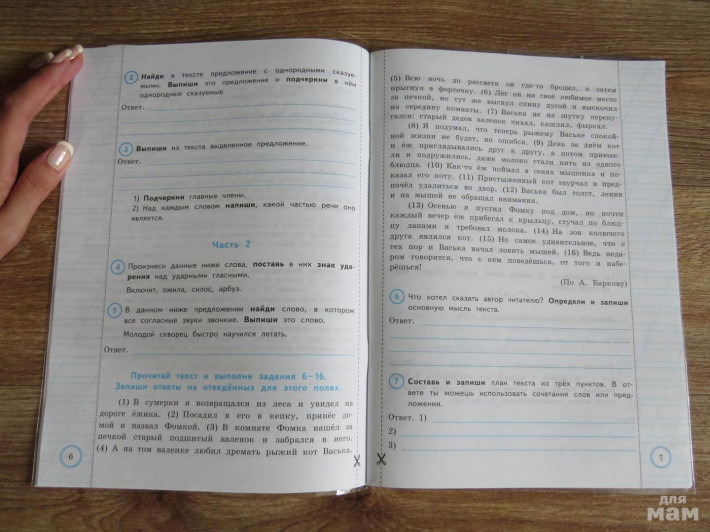 2 Найди в тексте предложение с однородными сказуе-
мыми. Выпиши это предложение и подчеркни в нём
однородные сказуемые.
Ответ.
3 Выпиши из текста выделенное предложение.
Ответ.
1) Подчеркни главные члены.
2) Над каждым словом напиши, какой частью речи оно
является.
Часть 2
4 Произнеси данные ниже слова, поставь в них знак уда-
рения над ударными гласными.
Включит, ожила, силос, арбуз.
5 В данном ниже предложении найди слово, в котором
все согласные звуки звонкие. Выпиши это слово.
Молодой скворец быстро научился летать.
Ответ.
Прочитай текст и выполни задания 6–16.
Запиши ответы на отведённых для этого полях.
(1) В сумерки я возвращался из леса и увидел на
дороге ёжика. (2) Посадил я его в кепку, принёс до-
мой и назвал Фомкой. (3) В комнате Фомка нашёл за
печкой старый подшитый валенок и забрался в него.
(4) А на том валенке любил дремать рыжий кот Васька.
6
(5) Всю ночь до рассвета он где-то бродил, а затем
прыгнул в форточку. (6) Лёг он на своё любимое место
за печкой, но тут же выгнул спину дугой и выскочил
на середину комнаты. (7) Васька не на шутку перепу-
гался: старый дедов валенок чихал, кашлял, фыркал.
(8) Я подумал, что теперь рыжему Ваське спокой-
ной жизни не будет, но ошибся. (9) День за днём кот
и ёж приглядывались друг к другу, а потом привык-
ли и подружились, даже молоко стали пить из одного
блюдца. (10) Как-то ёж поймал в сенях мышонка и по-
казал его коту. (11) Пристыженный кот заурчал и пред-
почёл удалиться во двор. (12) Васька был толст, ленив
и на мышей не обращал внимания.
(13) Осенью я пустил Фомку под дом, но почти
каждый вечер ёж прибегал к крыльцу, стучал по блюд-
цу лапами и требовал молока. (14) На зов колючего
друга являлся кот. (15) Но самое удивительное, что с
тех пор и Васька начал ловить мышей. (16) Ведь неда-
ром говорится, что с кем поведёшься, от того и набе-
рёшься!
(По А. Баркову)
6 Что хотел сказать автор читателю? Определи и запиши
основную мысль текста.
Ответ.
7 Составь и запиши план текста из трёх пунктов. В от-
вете ты можешь использовать сочетания слов или пред-
ложения.
Ответ. 1)
2)
3)
7
для
мам